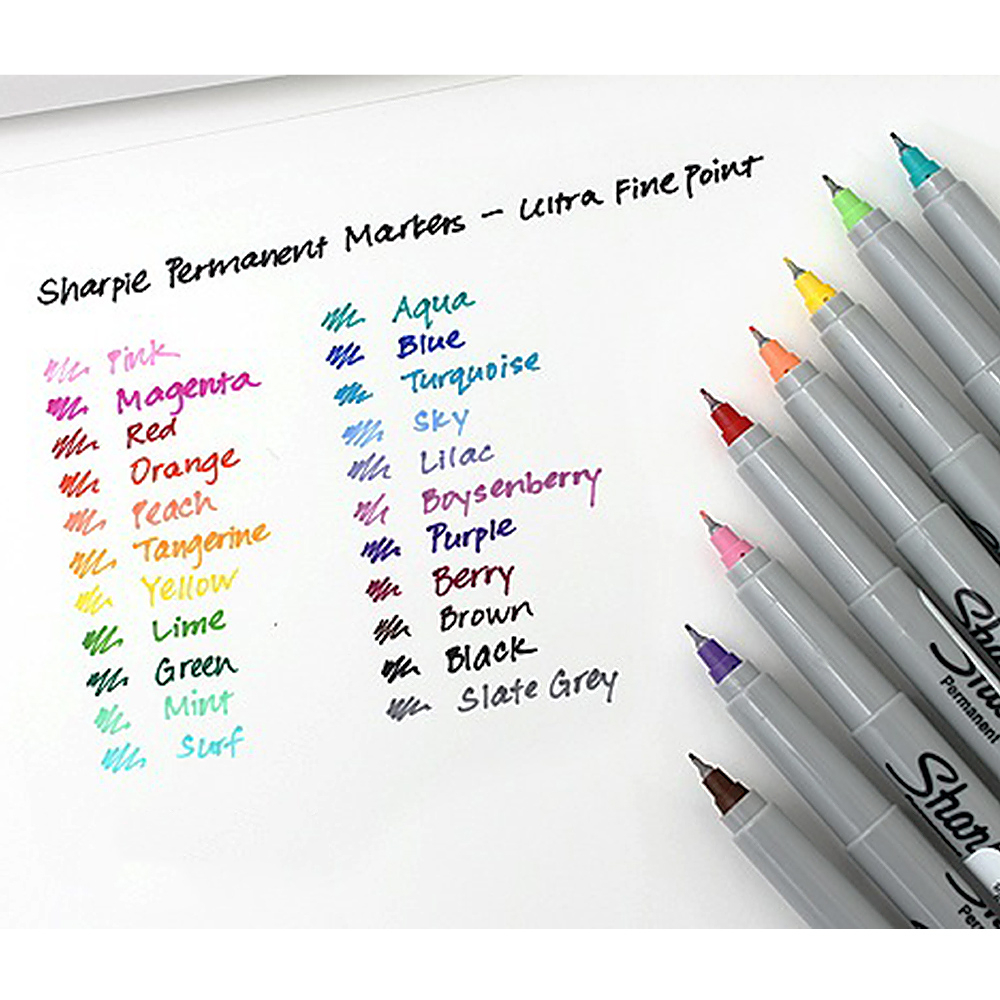 Sharpie Permanent Markers – Ultra Fine Point
Pink
Magenta
Red
Orange
Peach
Tangerine
Yellow
Lime
Green
Mint
Surf
Aqua
Blue
Turquoise
Sky
Lilac
Boysenberry
Purple
Berry
Brown
Black
Slate Grey
Permanent